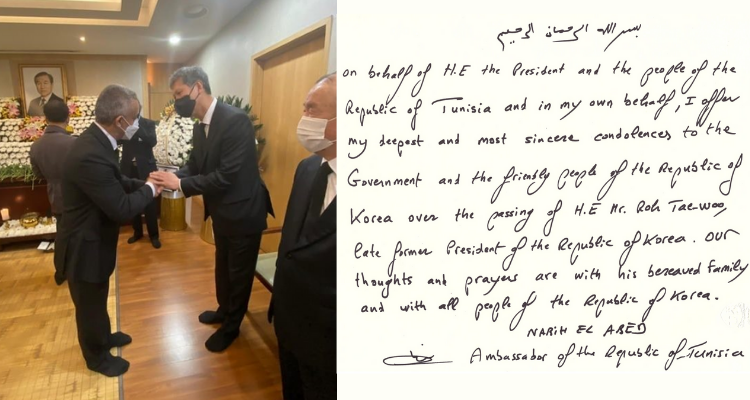 بسم الله الرحمان الرحيم
on behalf of H.E the President and the people of the
Republic of Tunisia and in my own behalf, I offer
my deepest and most sincere condolences to the
Government and the friendly people of the Republic of
Korea over the passing of H.E Mr. Roh Tae-woo,
late former President of the Republic of Korea. our
thoughts and prayers are with his bereaved family
and with all people of the Republic of Korea.
NABIH EL ABED
Ambassador of the Republic of Tunisia